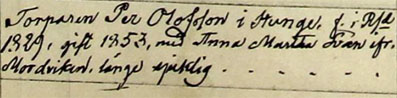 Torparen Per Olofson i Stunge, f. i Rfd
1829, gift 1853, med Anna Martha Svan ifr.
Mordviken, länge sjuklig . . . . . .